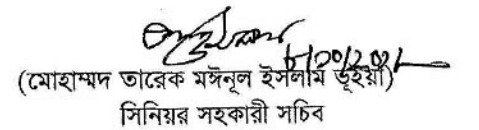 (মোহাম্মদ তারেক মঈনূল ইসলাম ভূইয়া)
সিনিয়র সহকারী সচিব